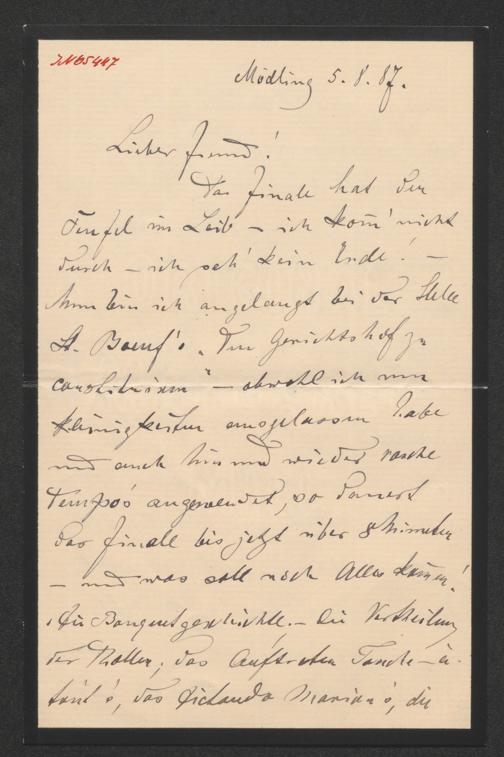 JN 65487
Mödling 5. 8. 87.
Lieber Freund!
Das Finale hat den
Teufel im Leib – ich kom̄' nicht
durch – ich seh' kein Ende! –
Nun bin ich angelangt bei der Stelle
St. Boeuf's „Den Gerichtshof zu
constituiren" – obwohl ich nur
Kleinigkeiten ausgelassen habe
und auch hin und wieder rasche
Tempo's angewendet, so dauert
das Finale bis jetzt über 8 Minuten
– und was soll noch Alles kom̄en!
Die Banquetgeschichte. – Die Vertheilung
der Rollen, das Auftreten
, das Marian's, die